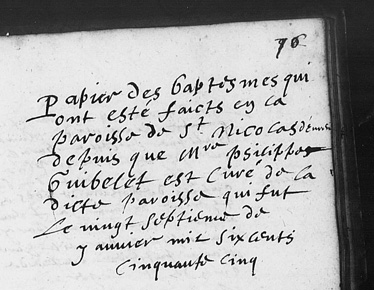 76
Papier des baptesmes qui
ont esté faicts en la
paroisse de St Nicolas
depuis que Mre Philippes
Guibelet est Curé de la
dicte paroisse qui fut
Le vingt septieme de
Janvier mil six cents
cinquante cinq